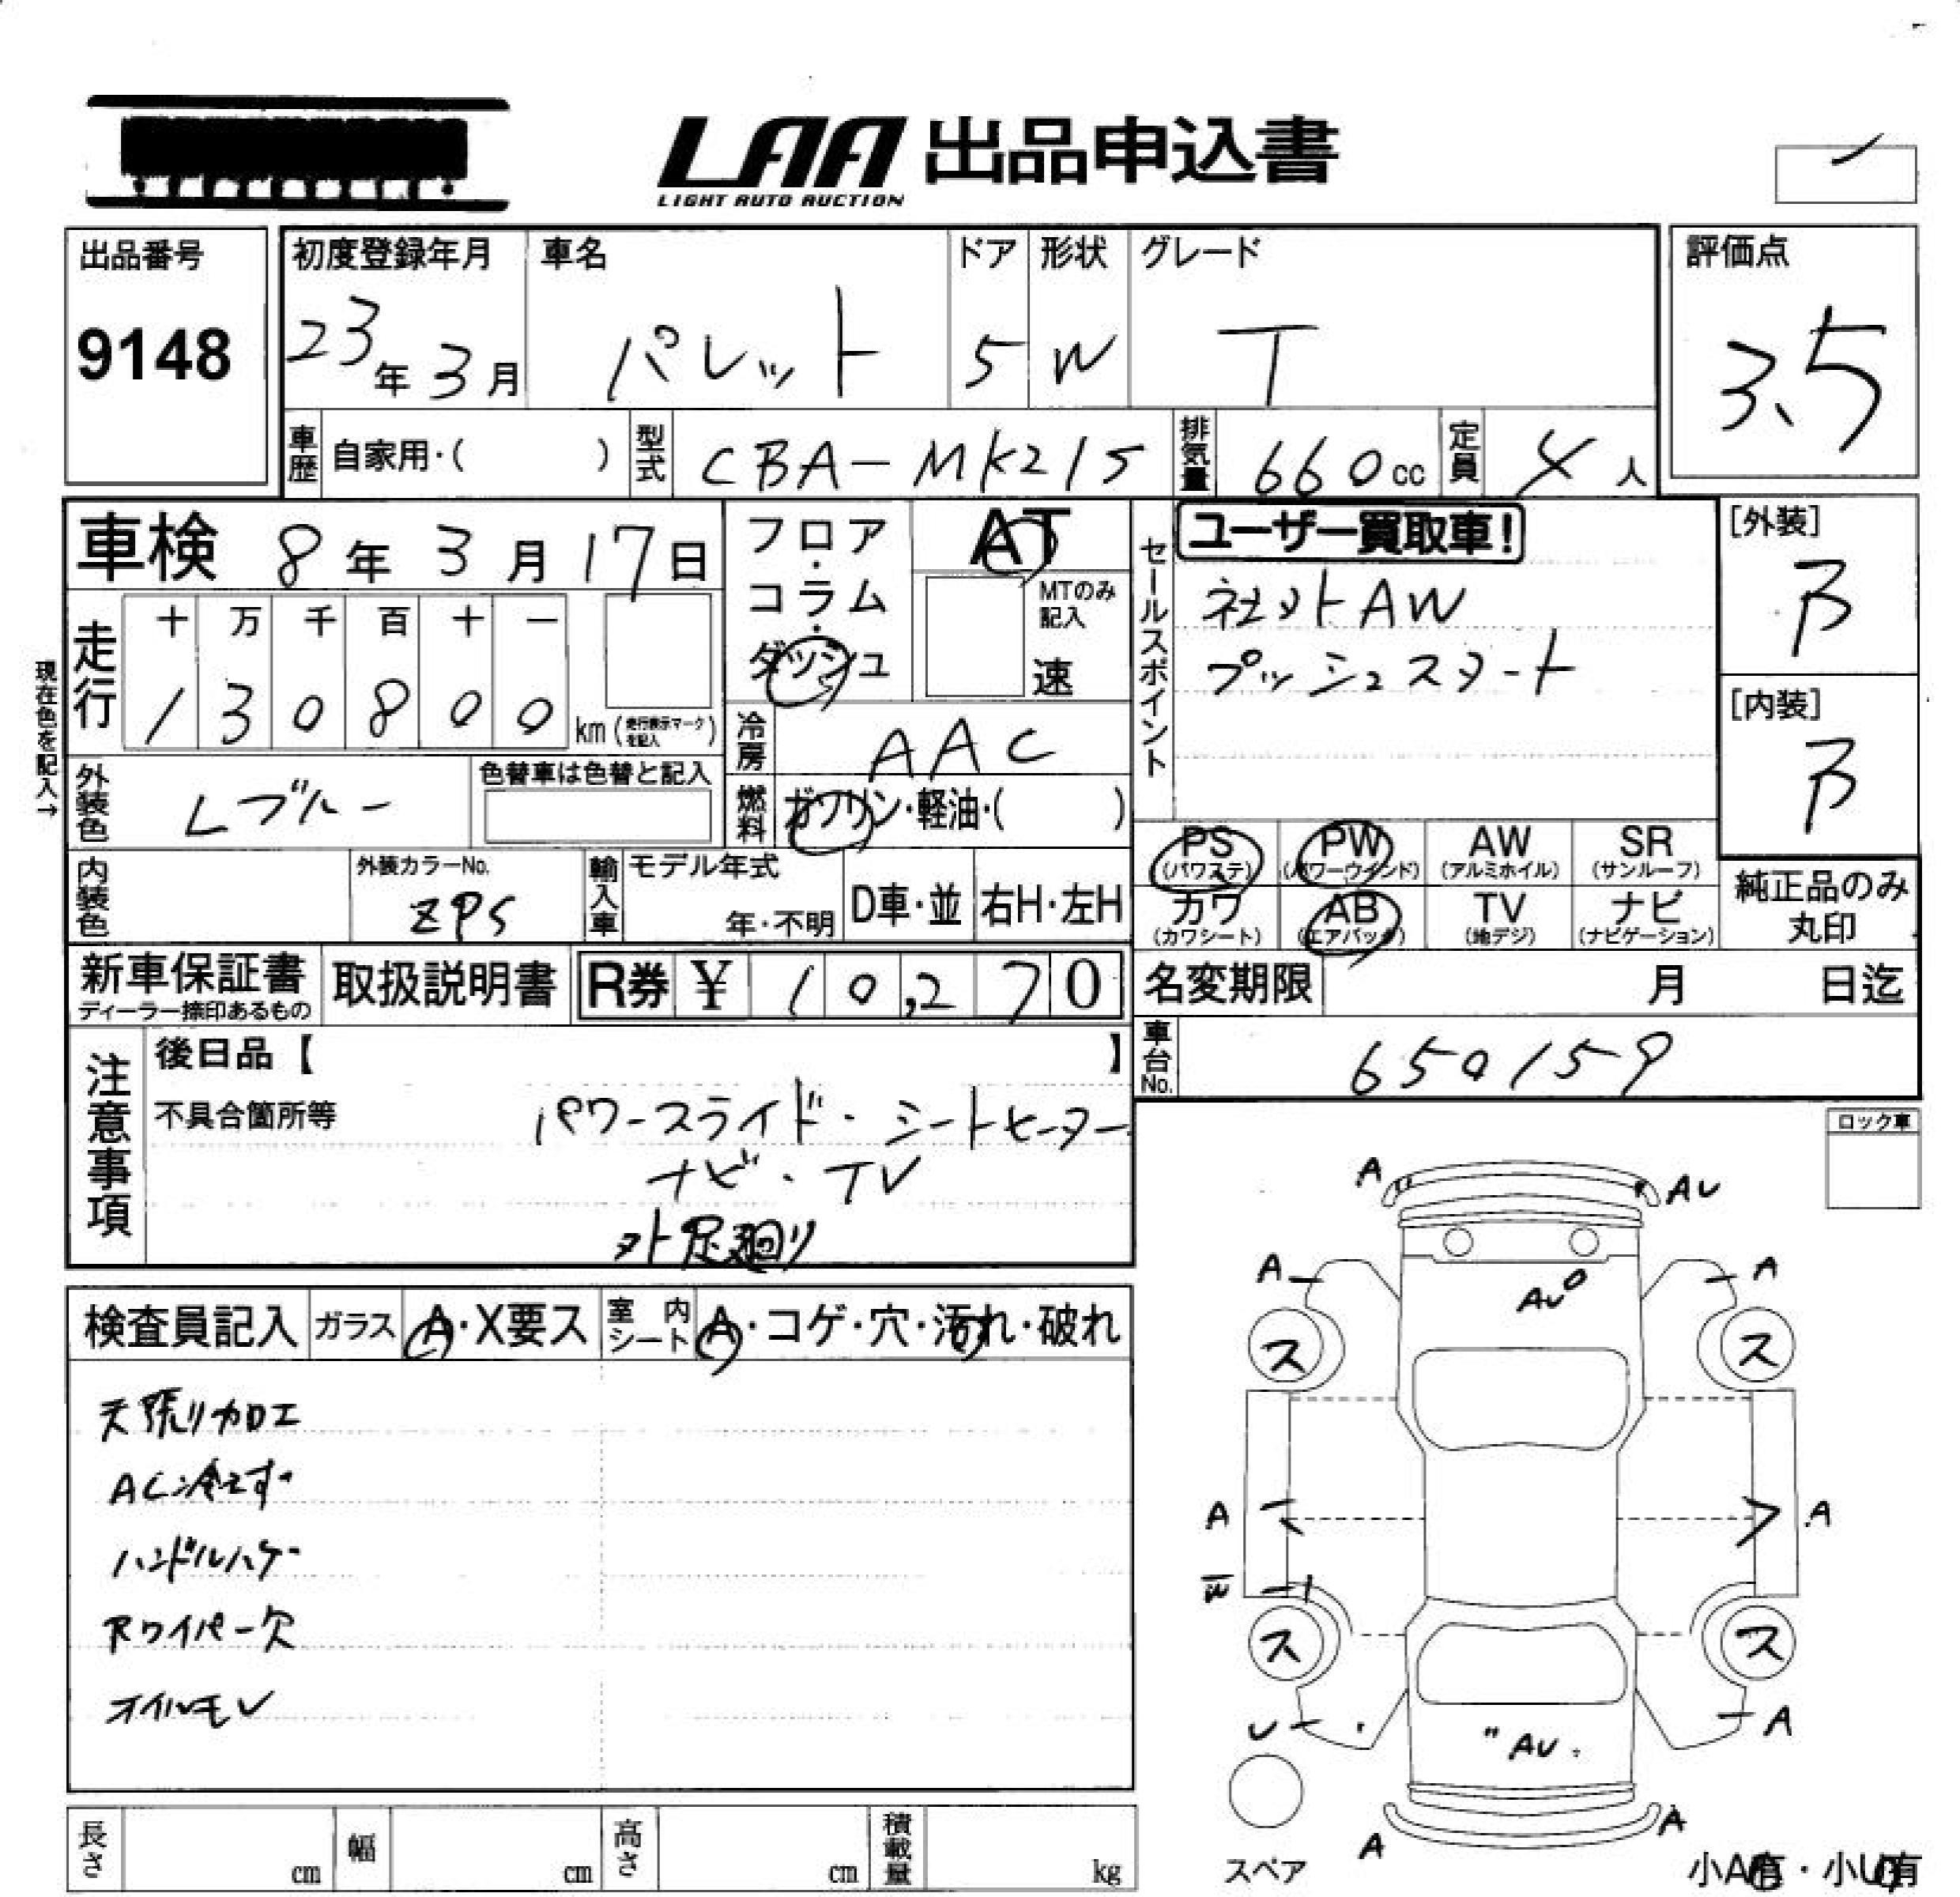 LAA 出品申込書
LIGHT AUTO AUCTION
出品番号
9148
初度登録年月
23年3月
車名
パレット
ドア
5
形状
W
グレード
T
評価点
3.5
車歴 自家用・( )
型式 CBA-MK21S
排気量 660cc
定員 4人
車検 8年3月17日
フロア・コラム・ダッシュ
AT
MTのみ記入
速
セールスポイント
ユーザー買取車!
社外AW
プッシュスタート
[外装]
B
[内装]
B
現在色を記入→
走行
十 万 千 百 十 一
1 3 0 8 0 0 km(走行表示マークを記入)
冷房 AAC
外装色 Lブルー
色替車は色替と記入
燃料 ガソリン・軽油・( )
PS (パワステ)
PW (パワーウインド)
AW (アルミホイル)
SR (サンルーフ)
内装色
外装カラーNo.
ZPS
輸入車
モデル年式
年・不明
D車・並
右H・左H
カワ (カワシート)
AB (エアバック)
TV (地デジ)
ナビ (ナビゲーション)
純正品のみ
丸印
新車保証書
ディーラー捺印あるもの
取扱説明書
R券 ¥ 10,270
名変期限 月 日迄
車台No. 650159
注意事項
後日品【 】
不具合箇所等
パワースライド・シートヒーター
ナビ・TV
外 足廻り
ロック車
検査員記入
ガラス A・X要ス
室内シート A・コゲ・穴・汚れ・破れ
天張り加工
AC冷えず
ハンドルハゲ
Rワイパー欠
オイルモレ
A AU
A AU A
ス ス
A A
W
ス ス
U AU A
A A
スペア
小A有・小U有
長さ cm
幅 cm
高さ cm
積載量 kg